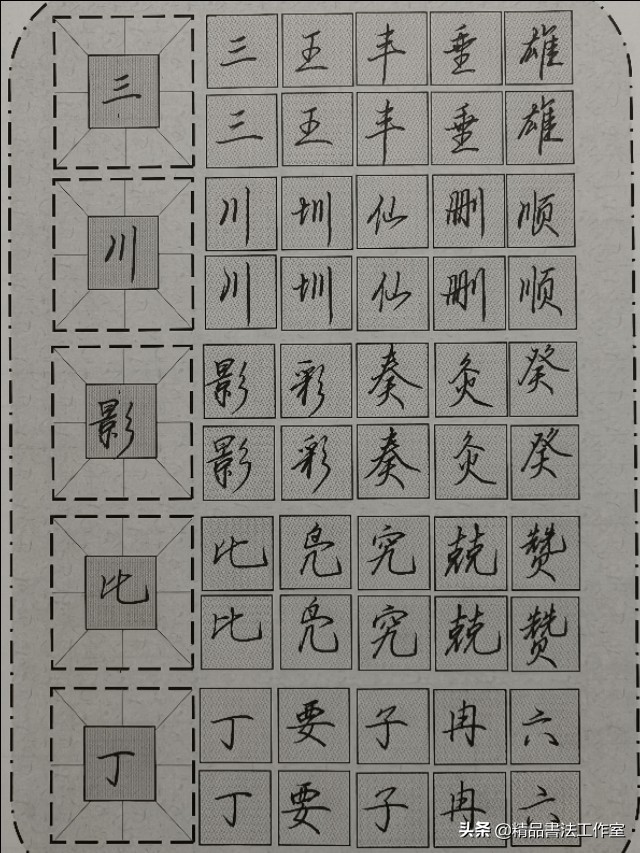 三 三 王 丰 垂 雄
三 王 丰 垂 雄
川 川 圳 仙 删 顺
川 圳 仙 删 顺
影 影 彩 奏 灸 癸
影 彩 奏 灸 癸
比 比 凫 究 兢 赞
比 凫 究 兢 赞
丁 丁 要 子 冉 六
丁 要 子 冉 六
头条 @精品書法工作室